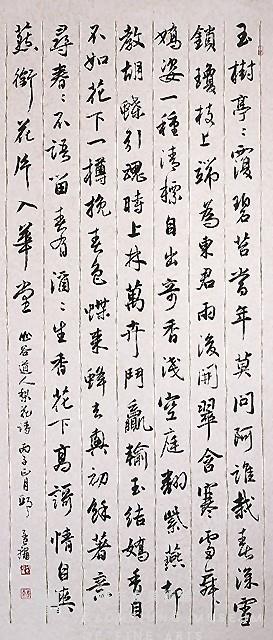 玉樹亭亭霞碧苔當年莫問阿誰栽春深雪
鎖瓊枝上端為東君雨後開翠含寒雪舞
嬌姿一種清標自出奇香淺空庭翻紫燕却
教胡蝶引魂時上林萬卉鬥贏輸玉結嬌香自
不如花下一樽挽春色蝶來蜂去興初餘著意
尋春春不語留春有酒酒生香花下高謌情自興
燕銜花片入華堂
山谷道人梨花詩 丙子正月